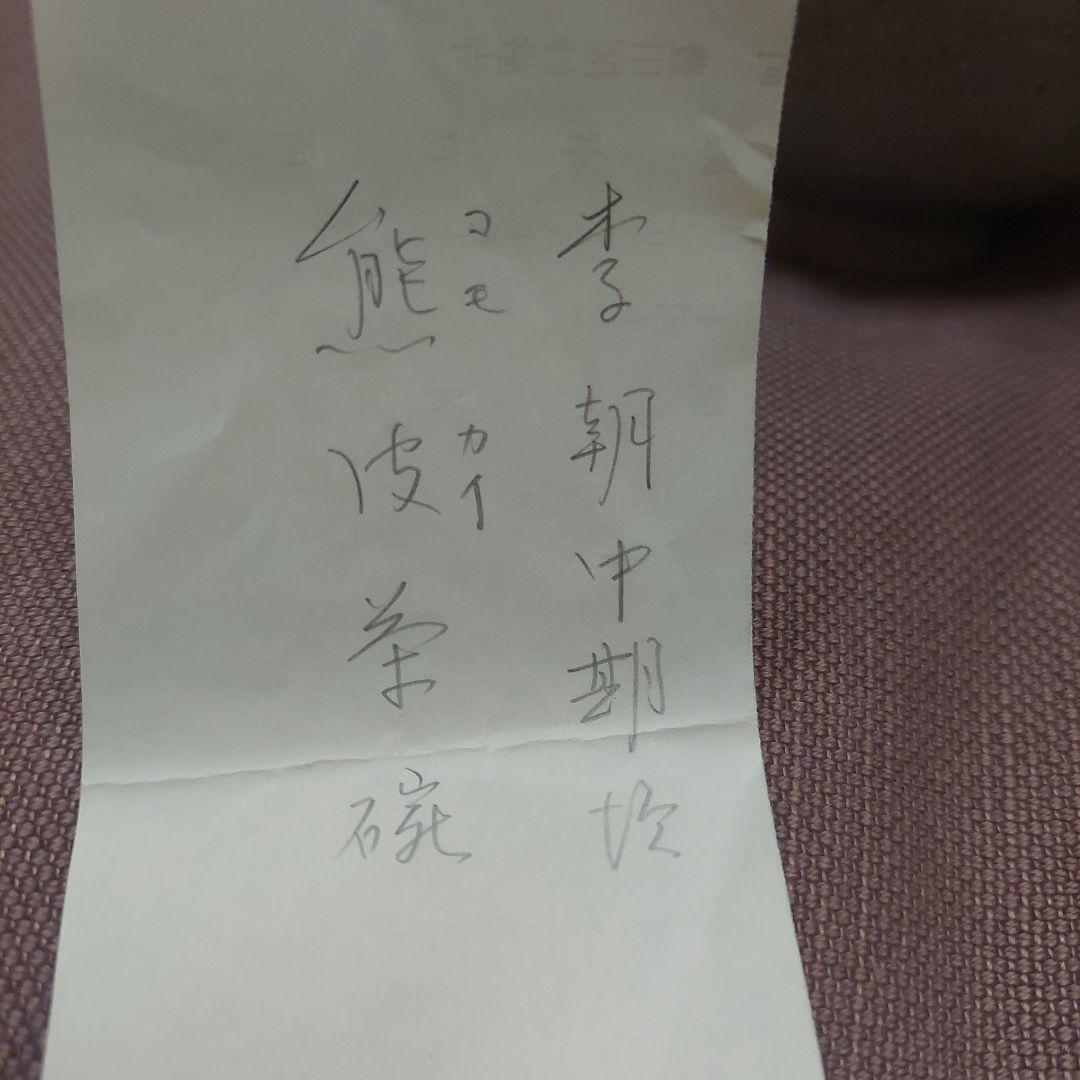 李朝中期
コモ カイ
熊波茶碗